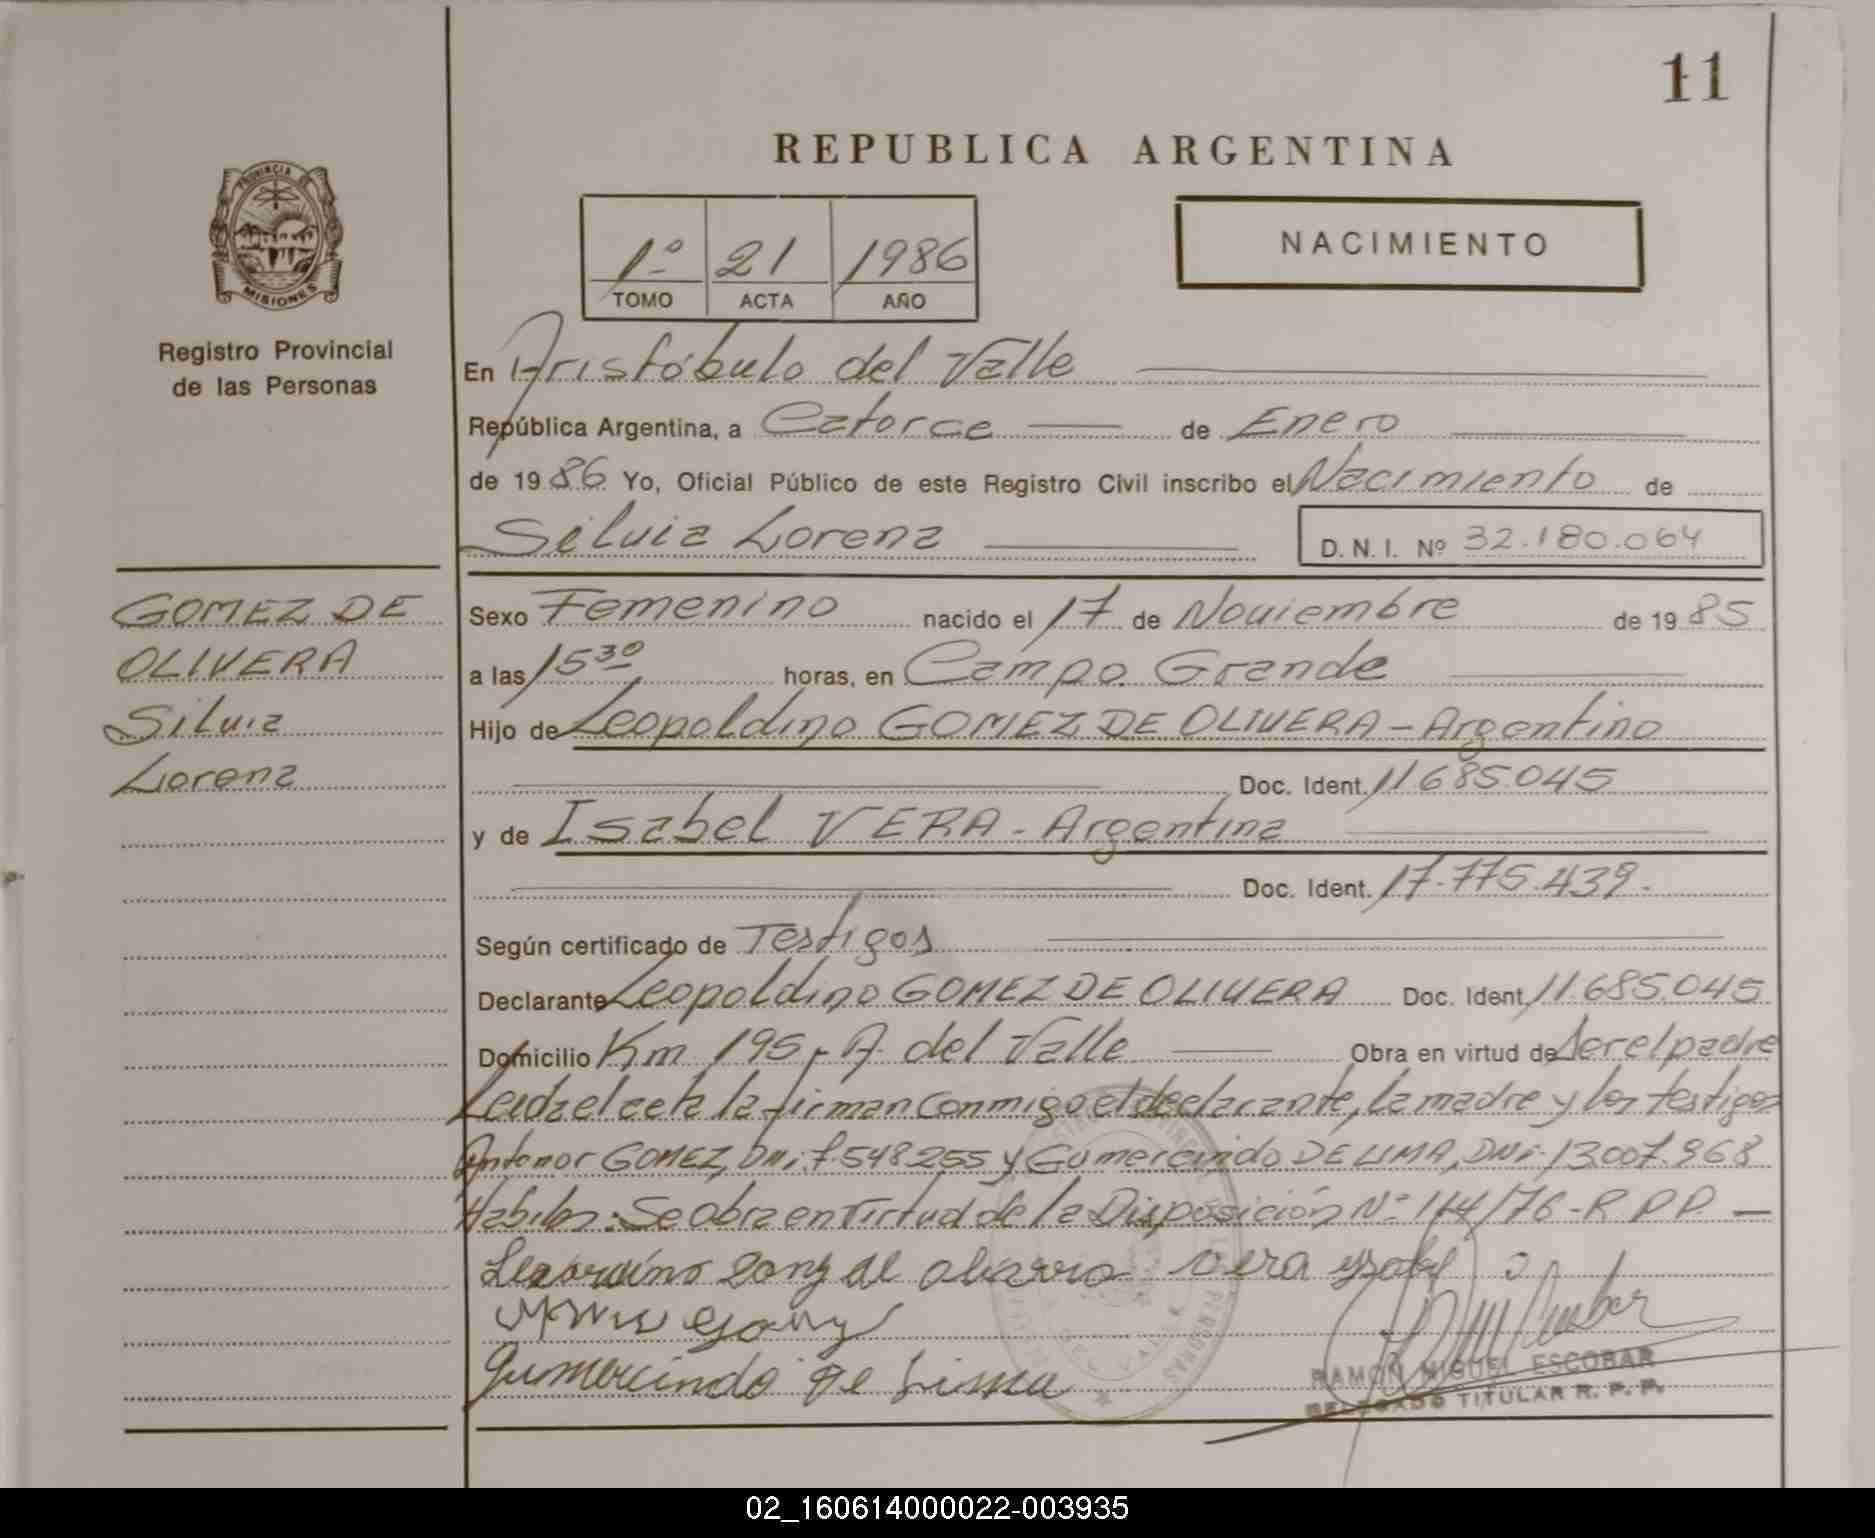 11
REPUBLICA ARGENTINA
PROVINCIA DE
MISIONES
1º 21 1986
TOMO ACTA AÑO
NACIMIENTO
Registro Provincial
de las Personas
En Aristóbulo del Valle
República Argentina, a Catorce de Enero
de 1986 Yo, Oficial Público de este Registro Civil inscribo el Nacimiento de
Silvia Lorena
D. N. I. Nº 32.180.064
GOMEZ DE
OLIVERA
Silvia
Lorena
Sexo Femenino nacido el 17 de Noviembre de 1985
a las 15 30 horas, en Campo Grande
Hijo de Leopoldino GOMEZ DE OLIVERA - Argentino
Doc. Ident. 11.685.045
y de Isabel VERA - Argentina
Doc. Ident. 17.775.439.
Según certificado de Testigos
Declarante Leopoldino GOMEZ DE OLIVERA Doc. Ident. 11.685.045
Domicilio Km 195 - A. del Valle Obra en virtud de ser el padre
Leida el acta la firman conmigo el declarante, la madre y los testigos
Antenor GOMEZ, DNI 7548255 y Gumercindo DE LIMA, DNI 13.007.968
Habiles. Se obra en virtud de la Disposición Nº 114/76 - R.P.P. —
vera ysabel
Gumercindo de Lima
RAMON MIGUEL ESCOBAR
DELEGADO TITULAR R. P. P.
02_160614000022-003935